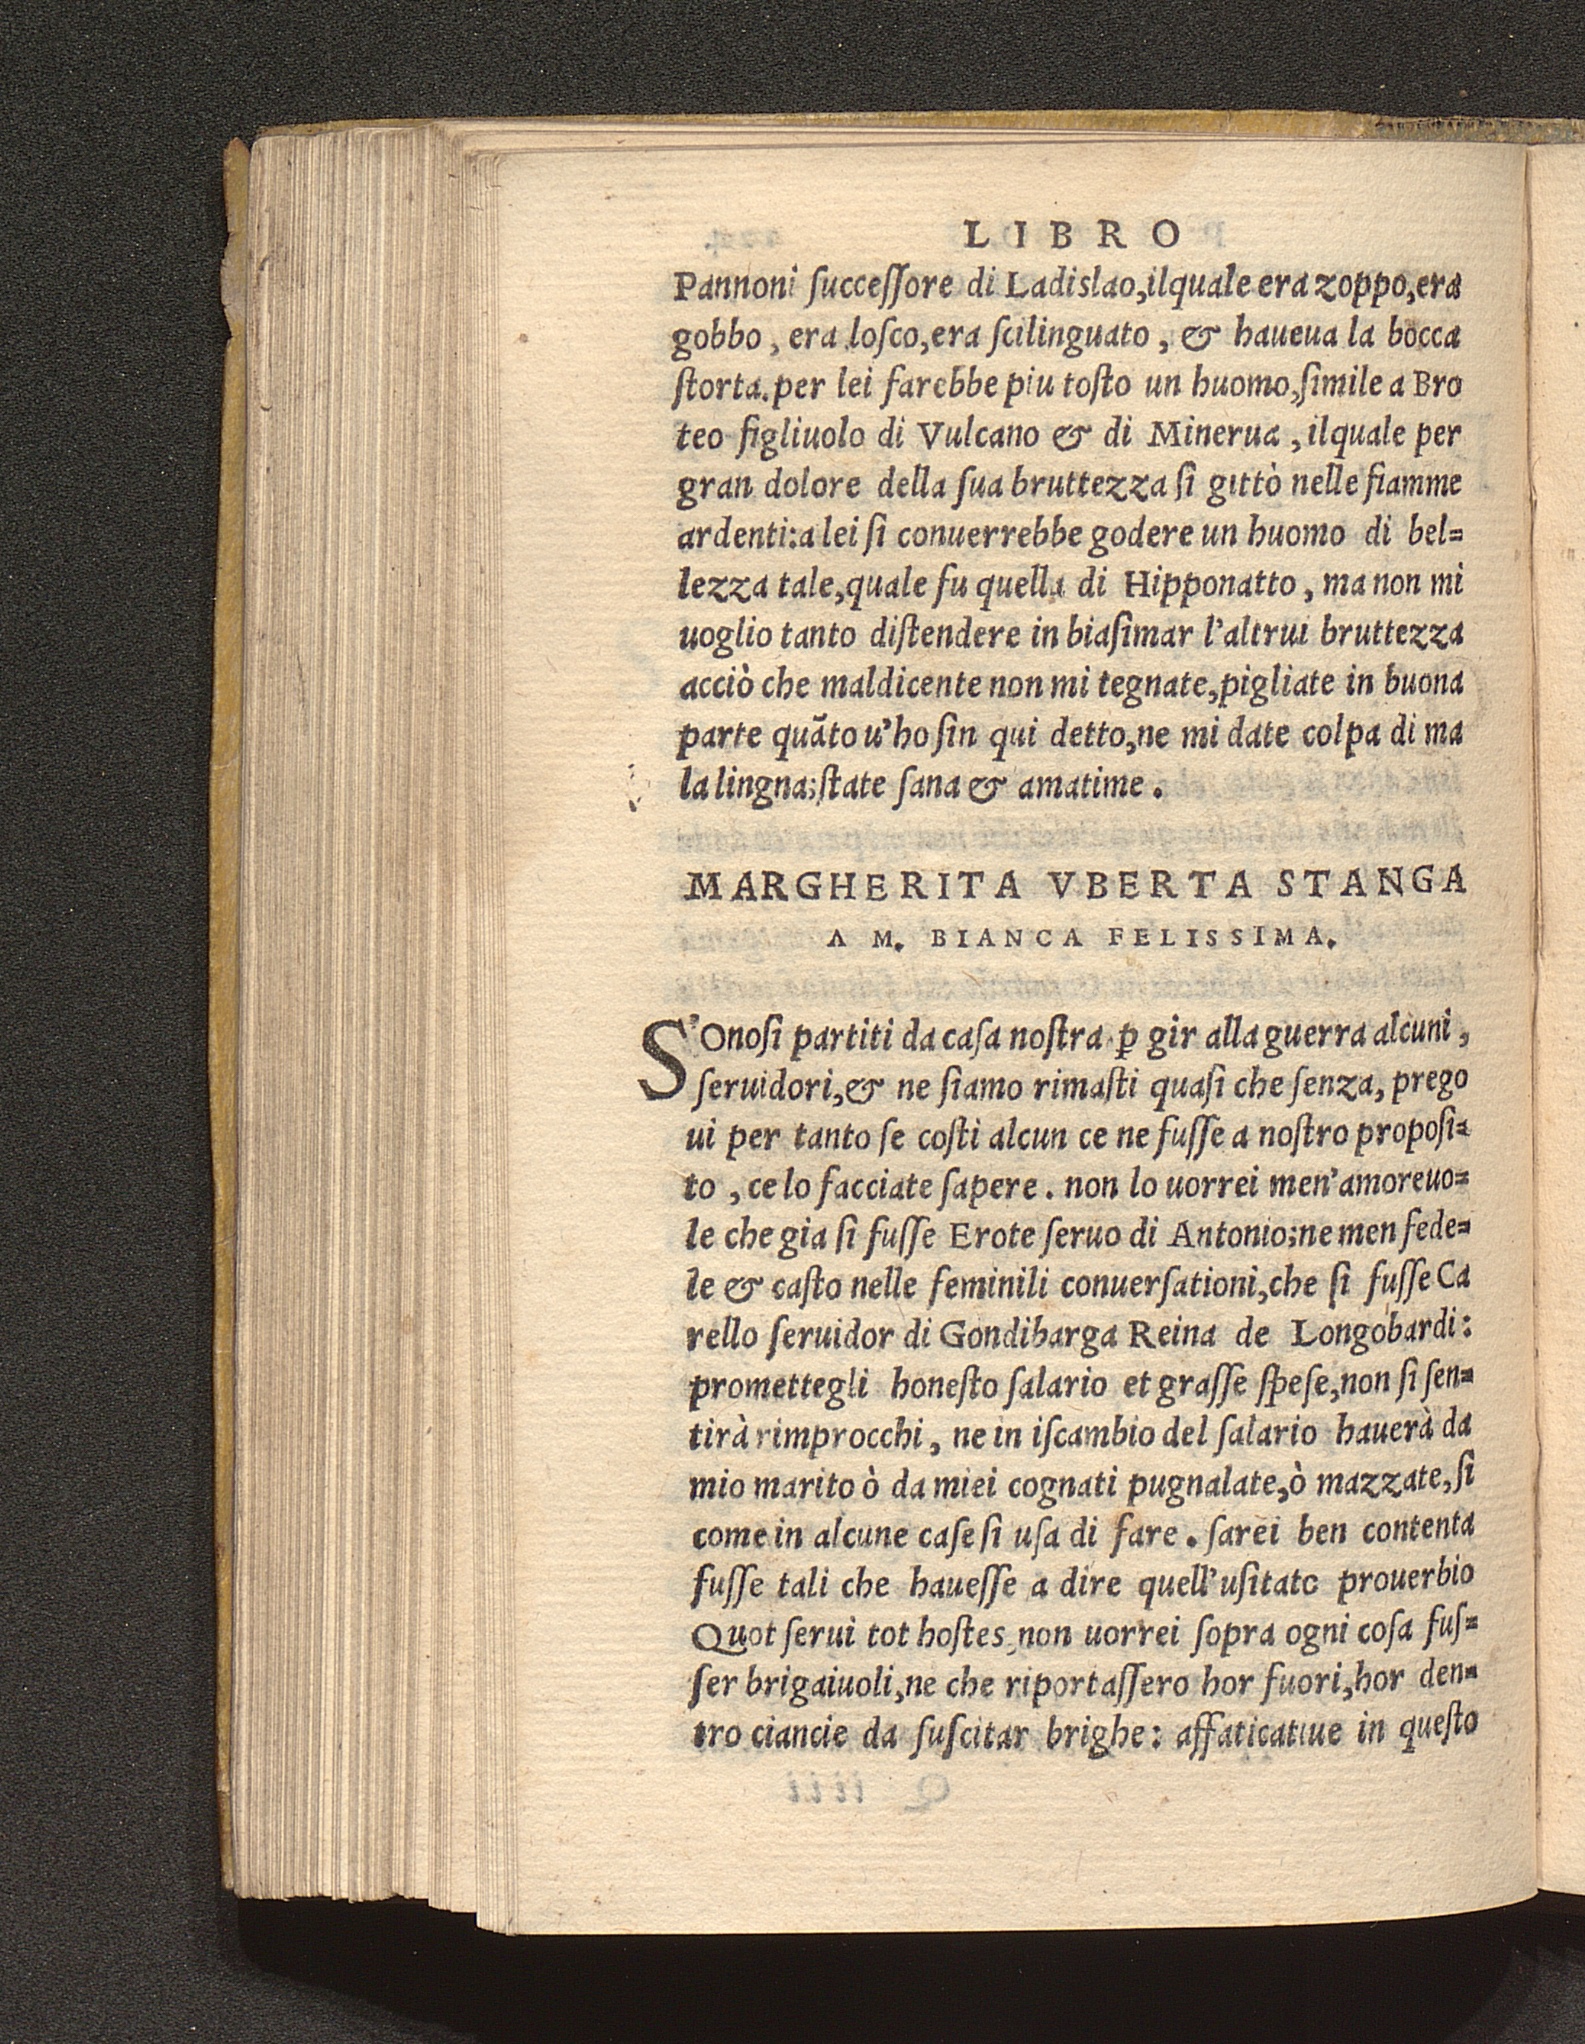 LIBRO
Pannoni ſucceſſore di Ladislao,ilquale era zoppo,era
gobbo, era loſco,era ſcilinguato, & haueua la bocca
ſtorta.per lei farebbe piu toſto un huomo,ſimile a Bro
teo figliuolo di Vulcano & di Minerua, ilquale per
gran dolore della ſua bruttezza ſi gittò nelle fiamme
ardenti:a lei ſi conuerrebbe godere un huomo di bel=
lezza tale,quale fu quella di Hipponatto, ma non mi
uoglio tanto diſtendere in biaſimar l'altrui bruttezza
acciò che maldicente non mi tegnate,pigliate in buona
parte quãto u'ho ſin qui detto,ne mi date colpa di ma
la lingna;ſtate ſana & amatime.
MARGHERITA VBERTA STANGA
A M. BIANCA FELISSIMA.
S'Onoſi partiti da caſa noſtra ꝑ gir alla guerra alcuni,
ſeruidori,& ne ſiamo rimaſti quaſi che ſenza, prego
ui per tanto ſe coſti alcun ce ne fuſſe a noſtro propoſi=
to, ce lo facciate ſapere. non lo uorrei men'amoreuo=
le che gia ſi fuſſe Erote ſeruo di Antonio;ne men fede=
le & caſto nelle feminili conuerſationi,che ſi fuſſe Ca
rello ſeruidor di Gondibarga Reina de Longobardi:
promettegli honeſto ſalario et graſſe ſpeſe,non ſi ſen=
tirà rimprocchi, ne in iſcambio del ſalario hauerà da
mio marito ò da miei cognati pugnalate,ò mazzate,ſi
come in alcune caſe ſi uſa di fare. ſarei ben contenta
fuſſe tali che haueſſe a dire quell'uſitato prouerbio
Quot ſerui tot hoſtes,non uorrei ſopra ogni coſa fuſ=
ſer brigaiuoli,ne che riportaſſero hor fuori,hor den=
tro ciancie da ſuſcitar brighe: affaticatiue in queſto